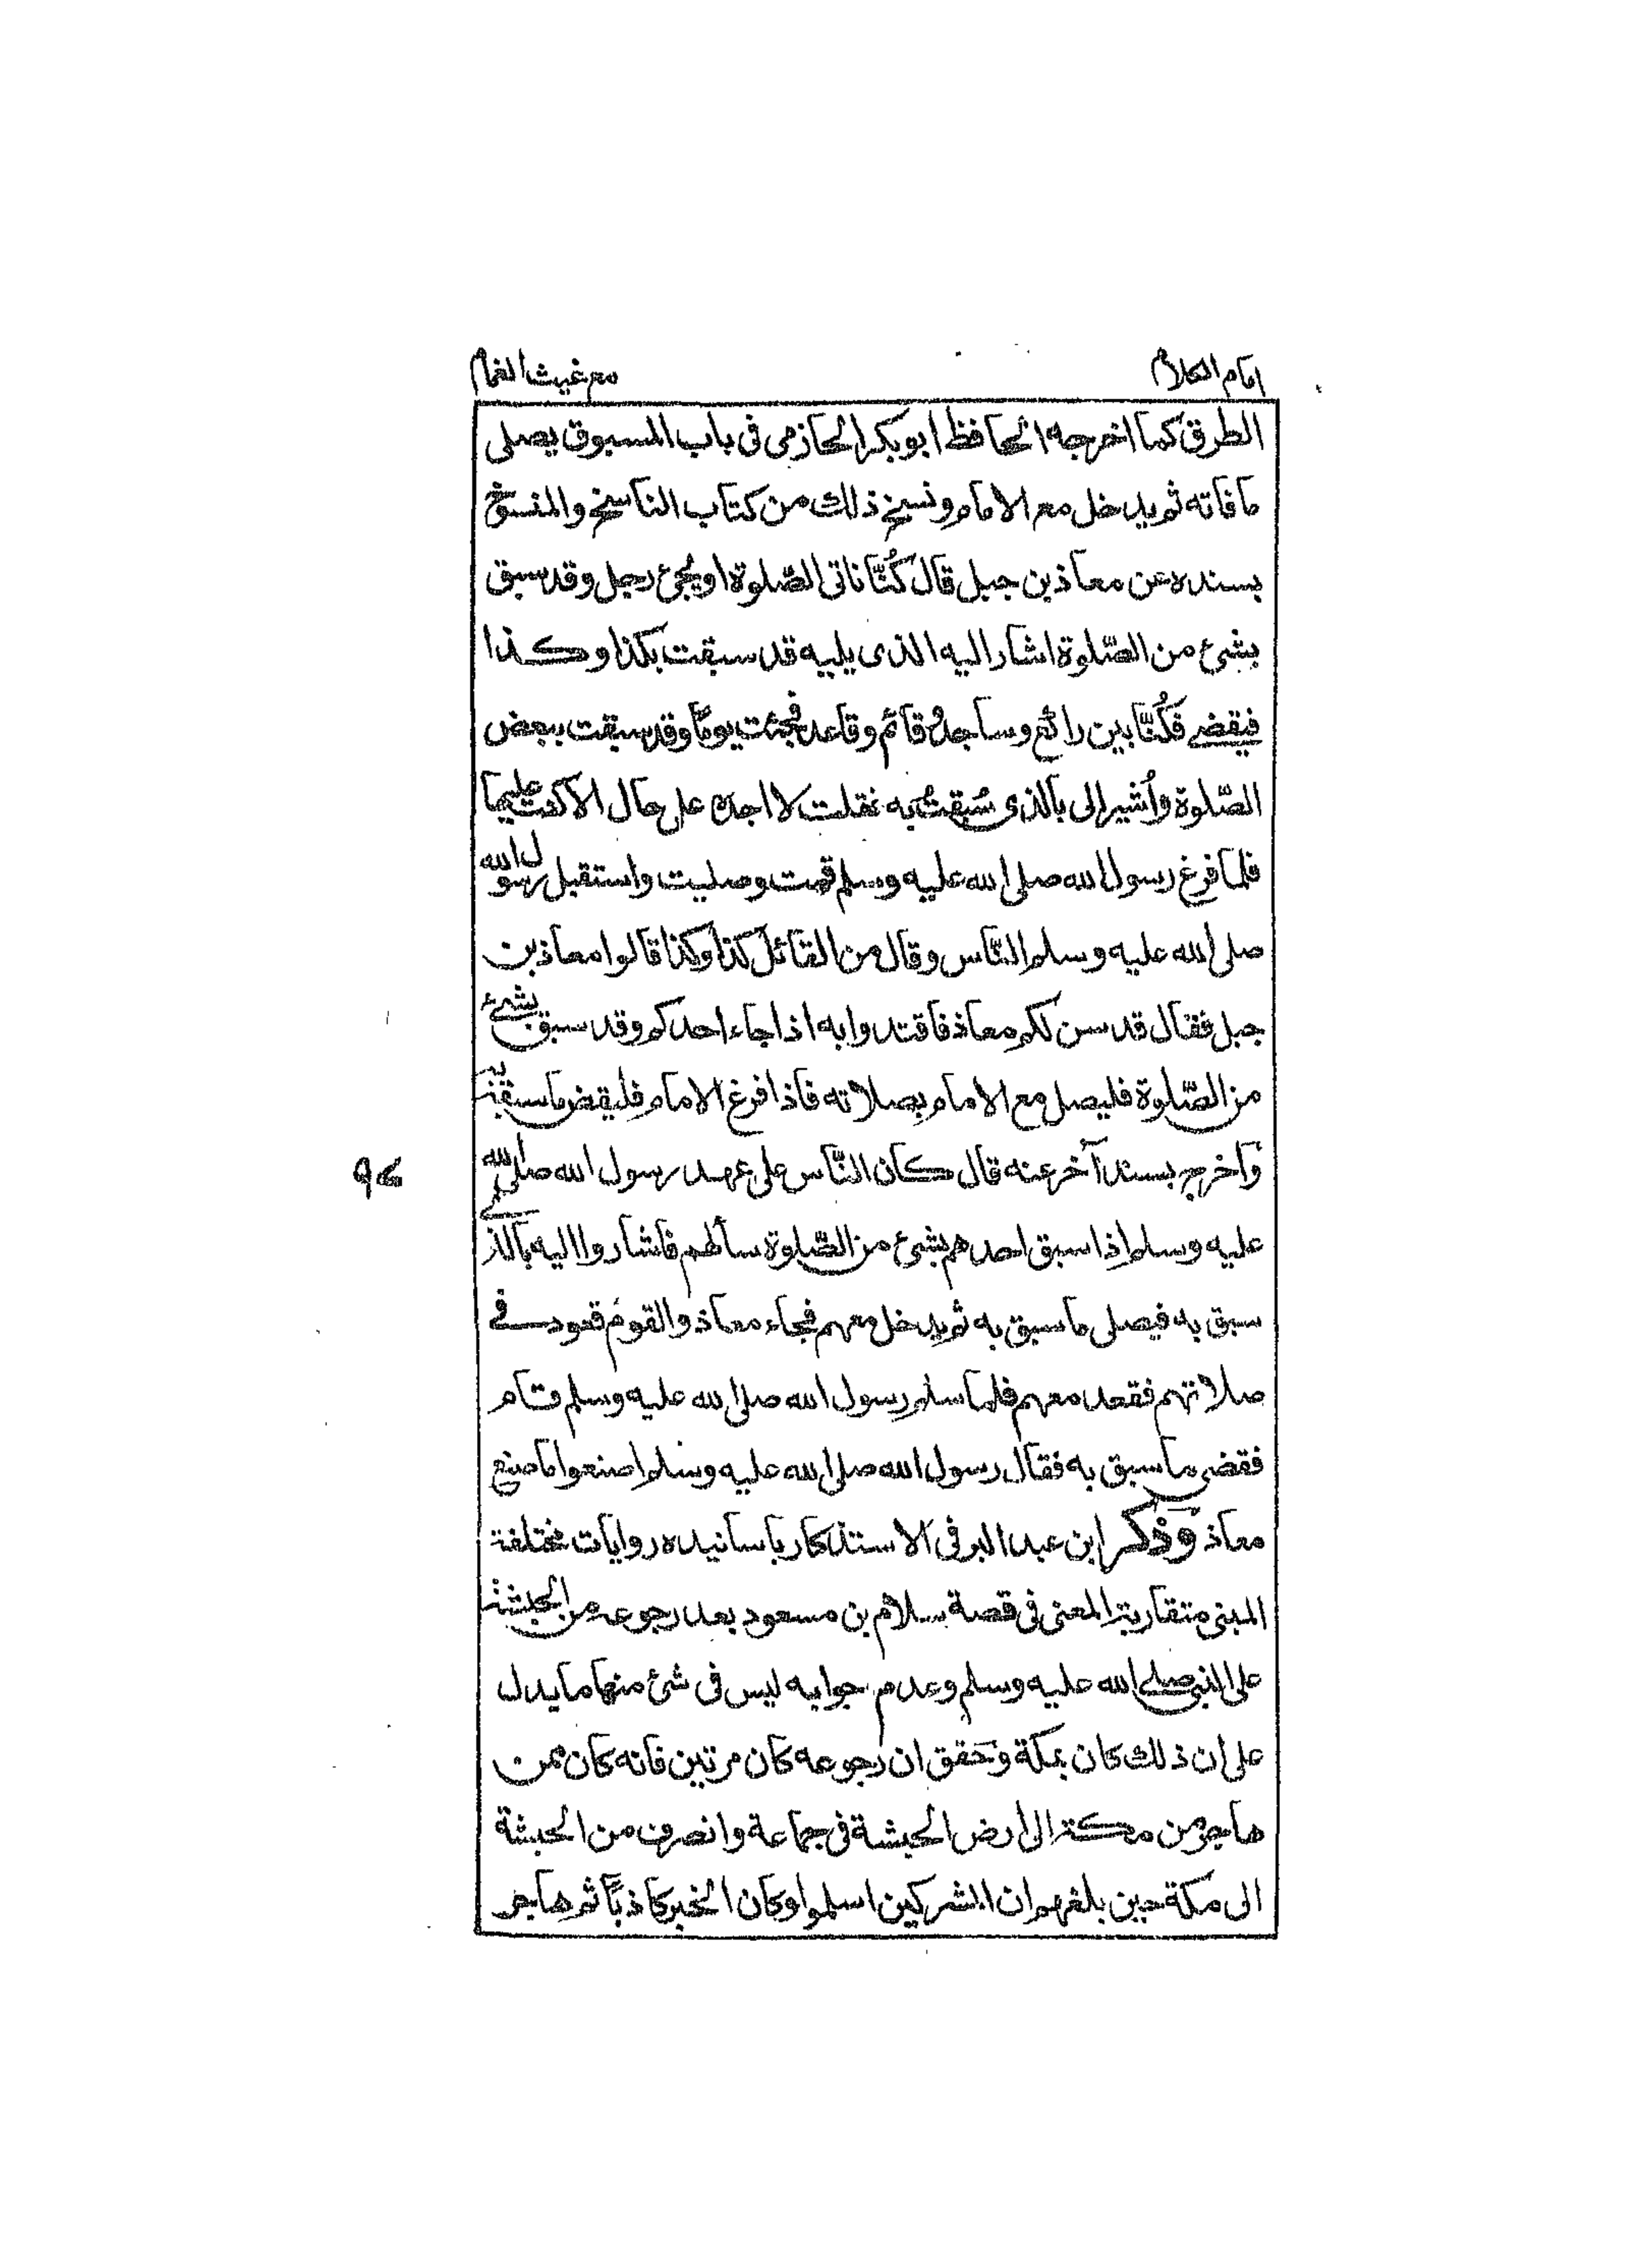 امام الكلام
مع غيث الغمام
الطرق كما اخرجه الحافظ ابو بكر الحازمى فى باب المسبوق يصلى
ما فاته ثم يدخل مع الامام ونسخ ذلك من كتاب الناسخ والمنسوخ
بسنده عن معاذ بن جبل قال كُنّا ناتى الصّلوة او يجئ رجل وقد سبق
بشئ من الصّلوة اشار اليه الذى يليه قد سبقت بكذا وكذا
فيقضے فكُنّا بين راكع وساجد وقائم وقاعد فجئت يومًا وقد سبقت ببعض
الصّلوة وأُشير الى بالذى سُبقتُ به فقلت لا اجده على حال الا كنت عليها
فلما فرغ رسول الله صلى الله عليه وسلم قمت وصليت واستقبل رسول الله
صلى الله عليه وسلم النّاس وقال من القائل كذا وكذا قالوا معاذ بن
جبل فقال قد سن لكم معاذ فاقتدوا به اذا جاء احدكم وقد سبق بشئ
من الصّلوة فليصل مع الامام بصلاته فاذا فرغ الامام فليقض ما سبقه به
وأخرج بسند آخر عنه قال كان النّاس على عهد رسول الله صلى الله
عليه وسلم اذا سبق احدهم بشئ من الصّلوة سألهم فاشاروا اليه بالذے
سبق به فيصلى ما سبق به ثم يدخل معهم فجاء معاذ والقوم قعود فے
صلاتهم فقعد معهم فلما سلم رسول الله صلى الله عليه وسلم قام
فقضى ما سبق به فقال رسول الله صلى الله عليه وسلم اصنعوا ما صنع
معاذ وَذكر ابن عبد البر فى الاستذكار باسانيده روايات مختلفة
المبنى متقاربة المعنى فى قصة سلام بن مسعود بعد رجوعه من الحبشة
على النبى صلے الله عليه وسلم وعدم جوابه ليس فى شئ منها ما يدل
على ان ذلك كان بمكة وَحقق ان رجوعه كان مرتين فانه كان ممن
هاجر من مكة الى ارض الحبشة فى جماعة وانصرف من الحبشة
الى مكة حين بلغهم ان المشركين اسلموا وكان الخبر كاذبًا ثم هاجر